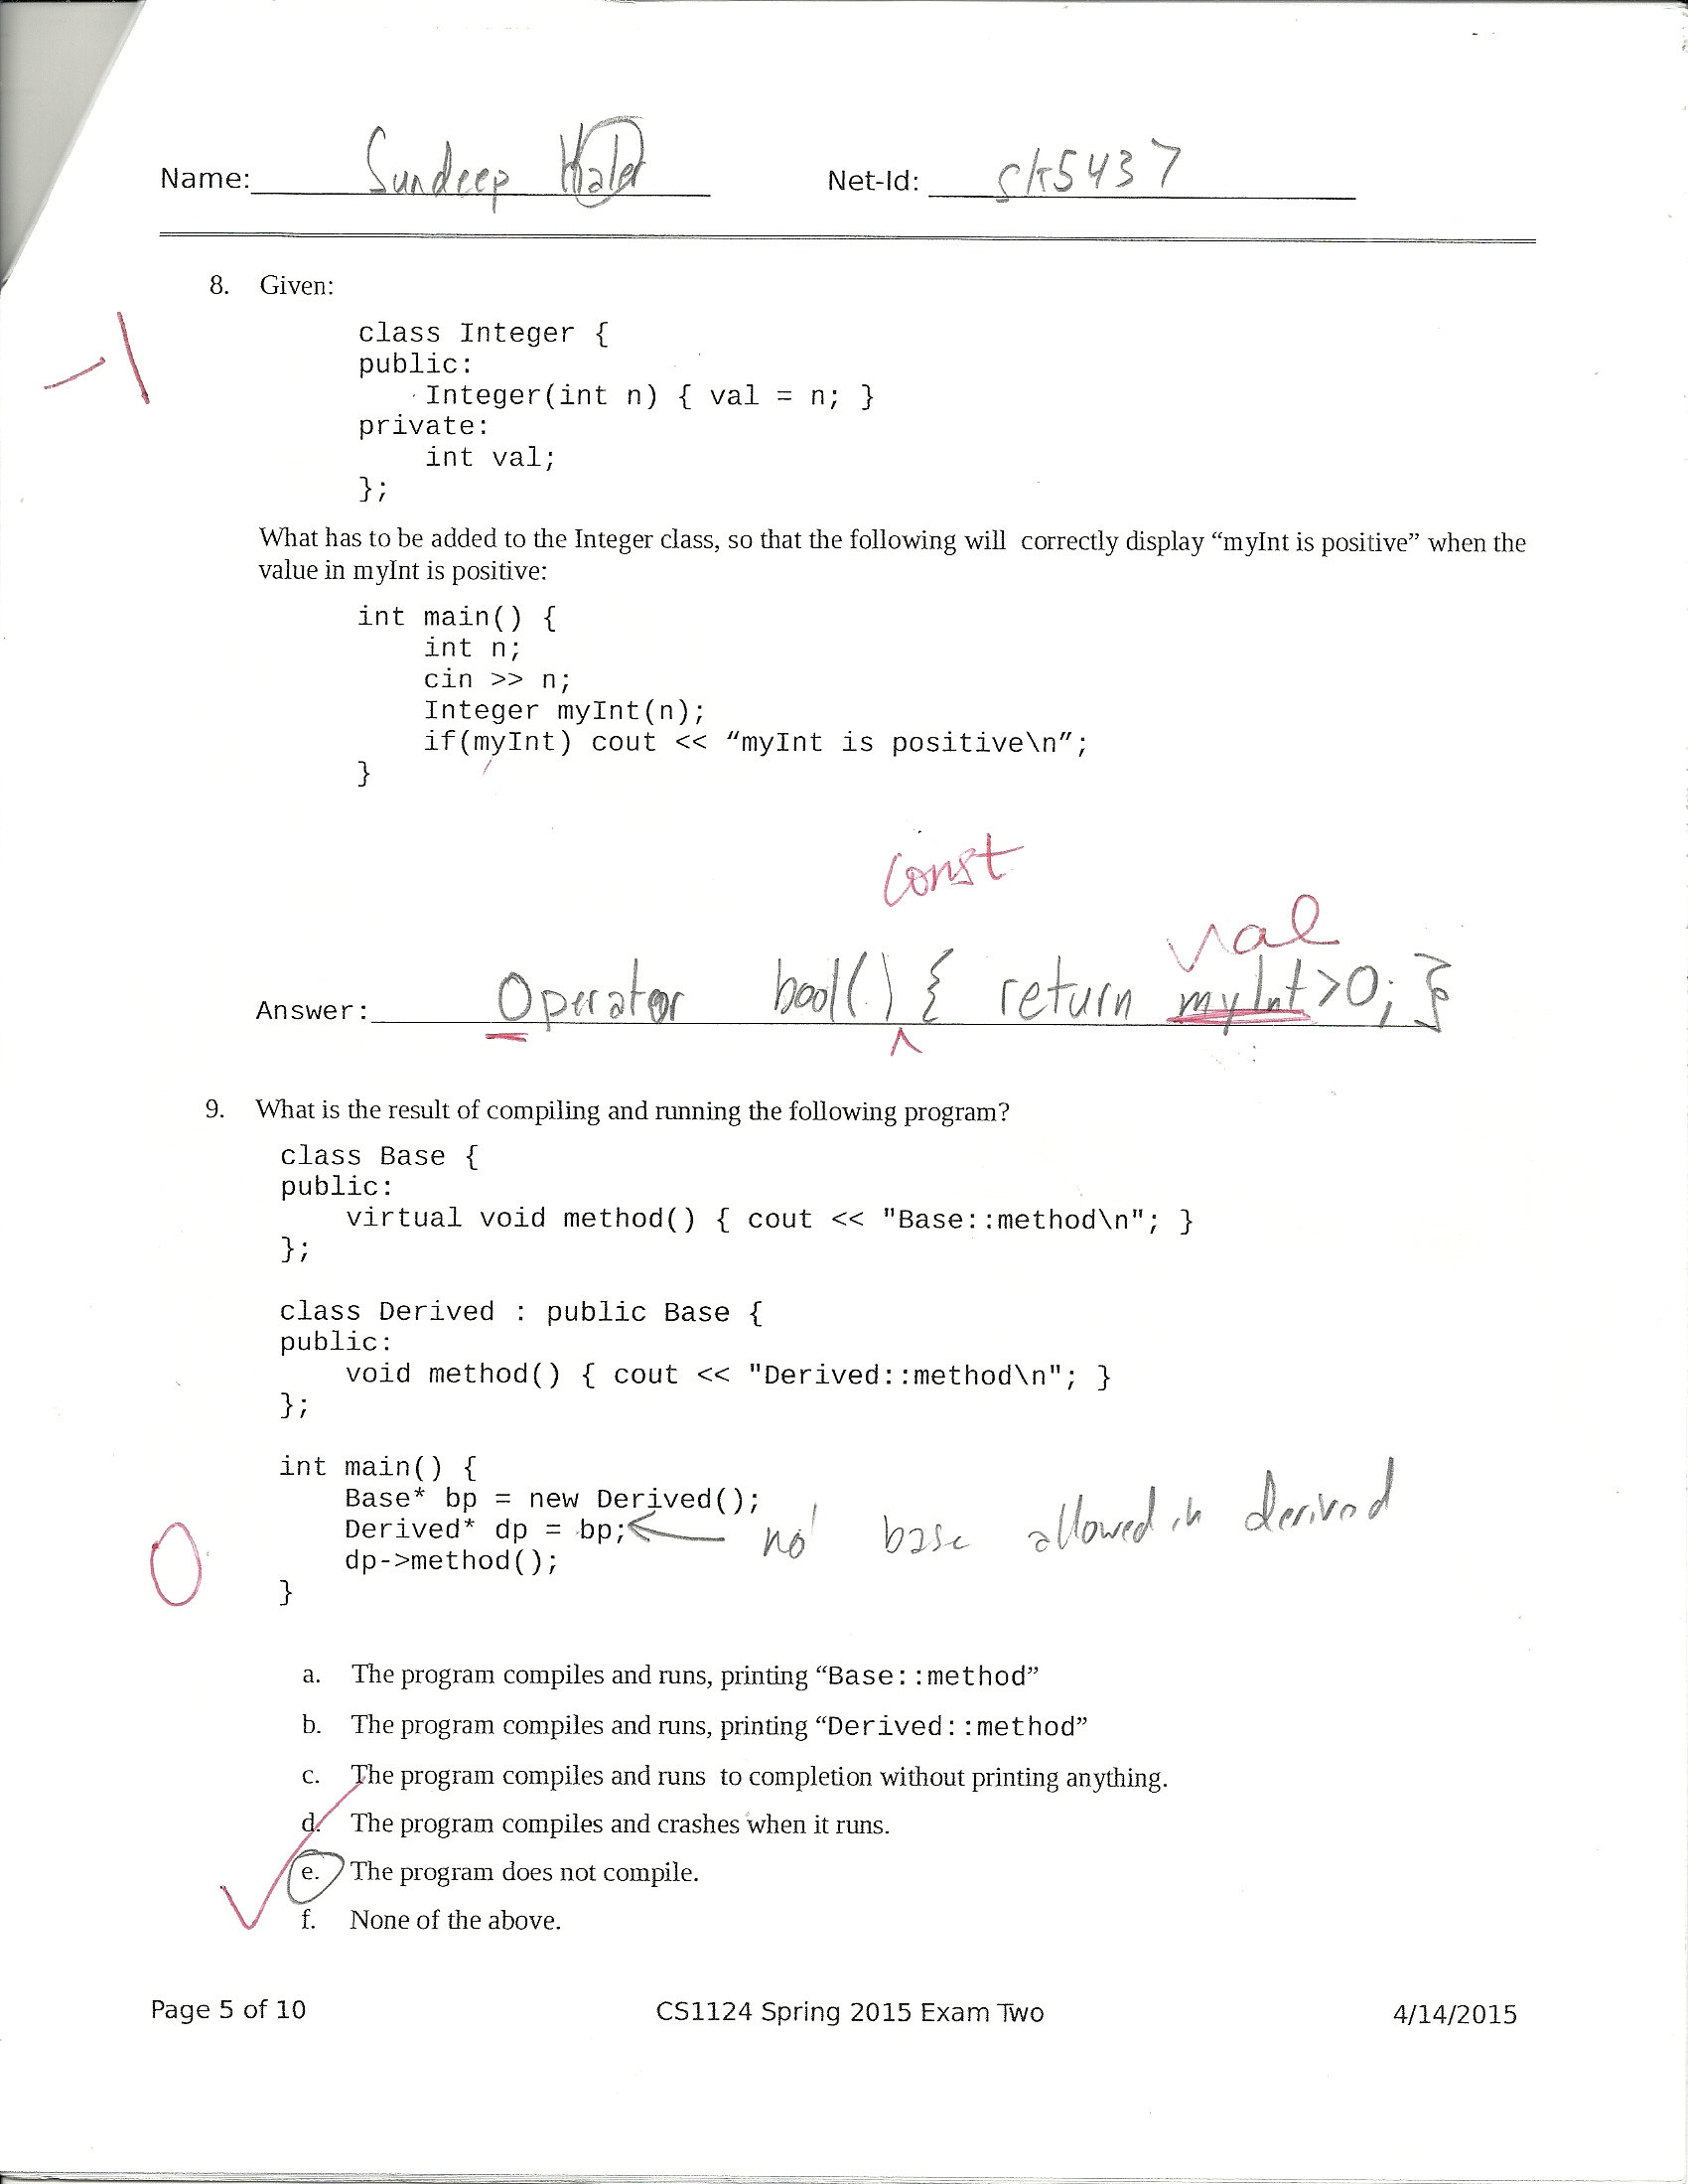 Name: Sundeep Net-Id: sk5437
8. Given:
-1
class Integer {
public:
Integer(int n) { val = n; }
private:
int val;
};
What has to be added to the Integer class, so that the following will correctly display “myInt is positive” when the
value in myInt is positive:
int main() {
int n;
cin >> n;
Integer myInt(n);
if(myInt) cout << “myInt is positive\n”;
}
const
val
Answer: Operator bool() { return myInt>0; }
9. What is the result of compiling and running the following program?
class Base {
public:
virtual void method() { cout << "Base::method\n"; }
};
class Derived : public Base {
public:
void method() { cout << "Derived::method\n"; }
};
int main() {
Base* bp = new Derived();
Derived* dp = bp; no base allowed in derived
0
dp->method();
}
a. The program compiles and runs, printing “Base::method”
b. The program compiles and runs, printing “Derived::method”
c. The program compiles and runs to completion without printing anything.
d. The program compiles and crashes when it runs.
e. The program does not compile.
f. None of the above.
Page 5 of 10 CS1124 Spring 2015 Exam Two 4/14/2015